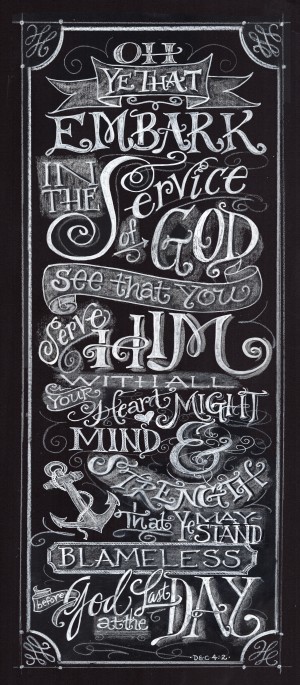 OH
YE THAT
EMBARK
IN THE Service
of GOD
see that you
Serve HIM
WITH ALL
Your Heart MIGHT
MIND &
STRENGTH
that Ye MAY STAND
BLAMELESS
before God at the Last DAY
D&C 4:2